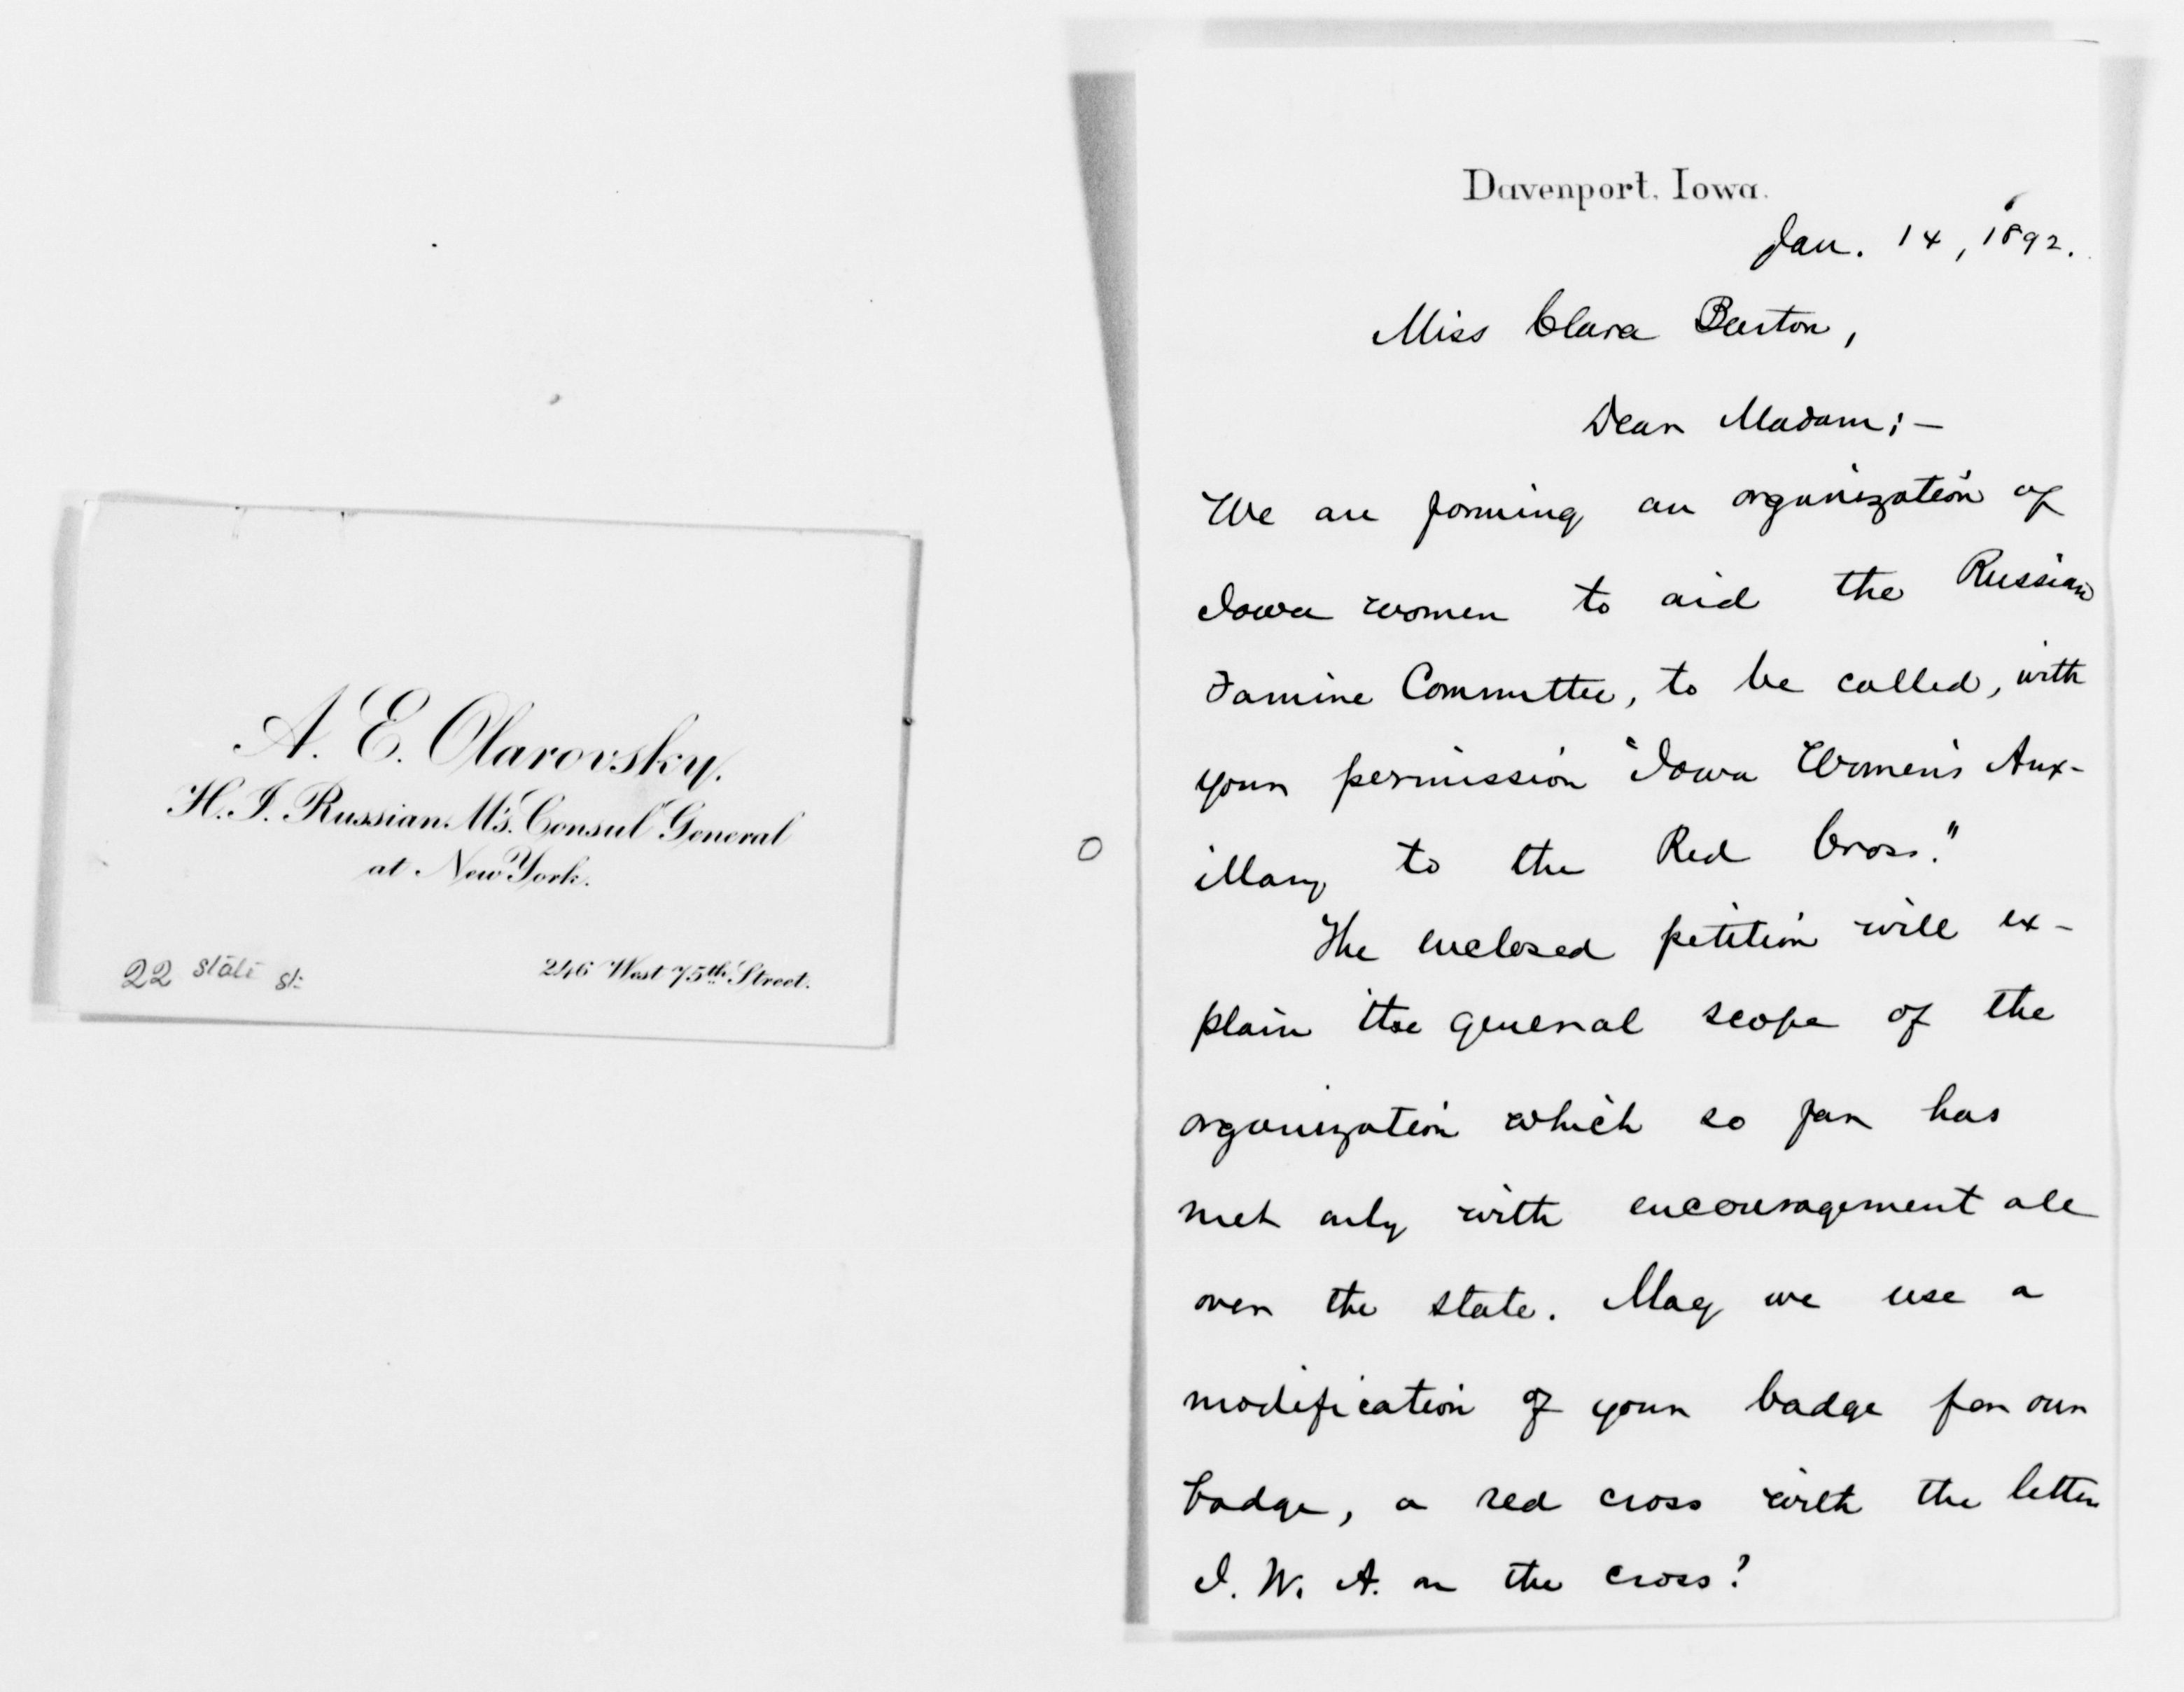 A. E. Olarovsky.
H. I. Russian M's. Consul General
at New York.
22 State St:
246 West 75th Street.
Davenport, Iowa.
Jan. 14, 1892.
Miss Clara Barton,
Dear Madam:—
We are forming an organization of
Iowa women to aid the Russian
Famine Committee, to be called, with
your permission "Iowa Women's Aux-
illary to the Red Cross."
The enclosed petition will ex-
plain the general scope of the
organization which so far has
met only with encouragement all
over the state. May we use a
modification of your badge for our
badge, a red cross with the letters
I. W. A. on the cross?